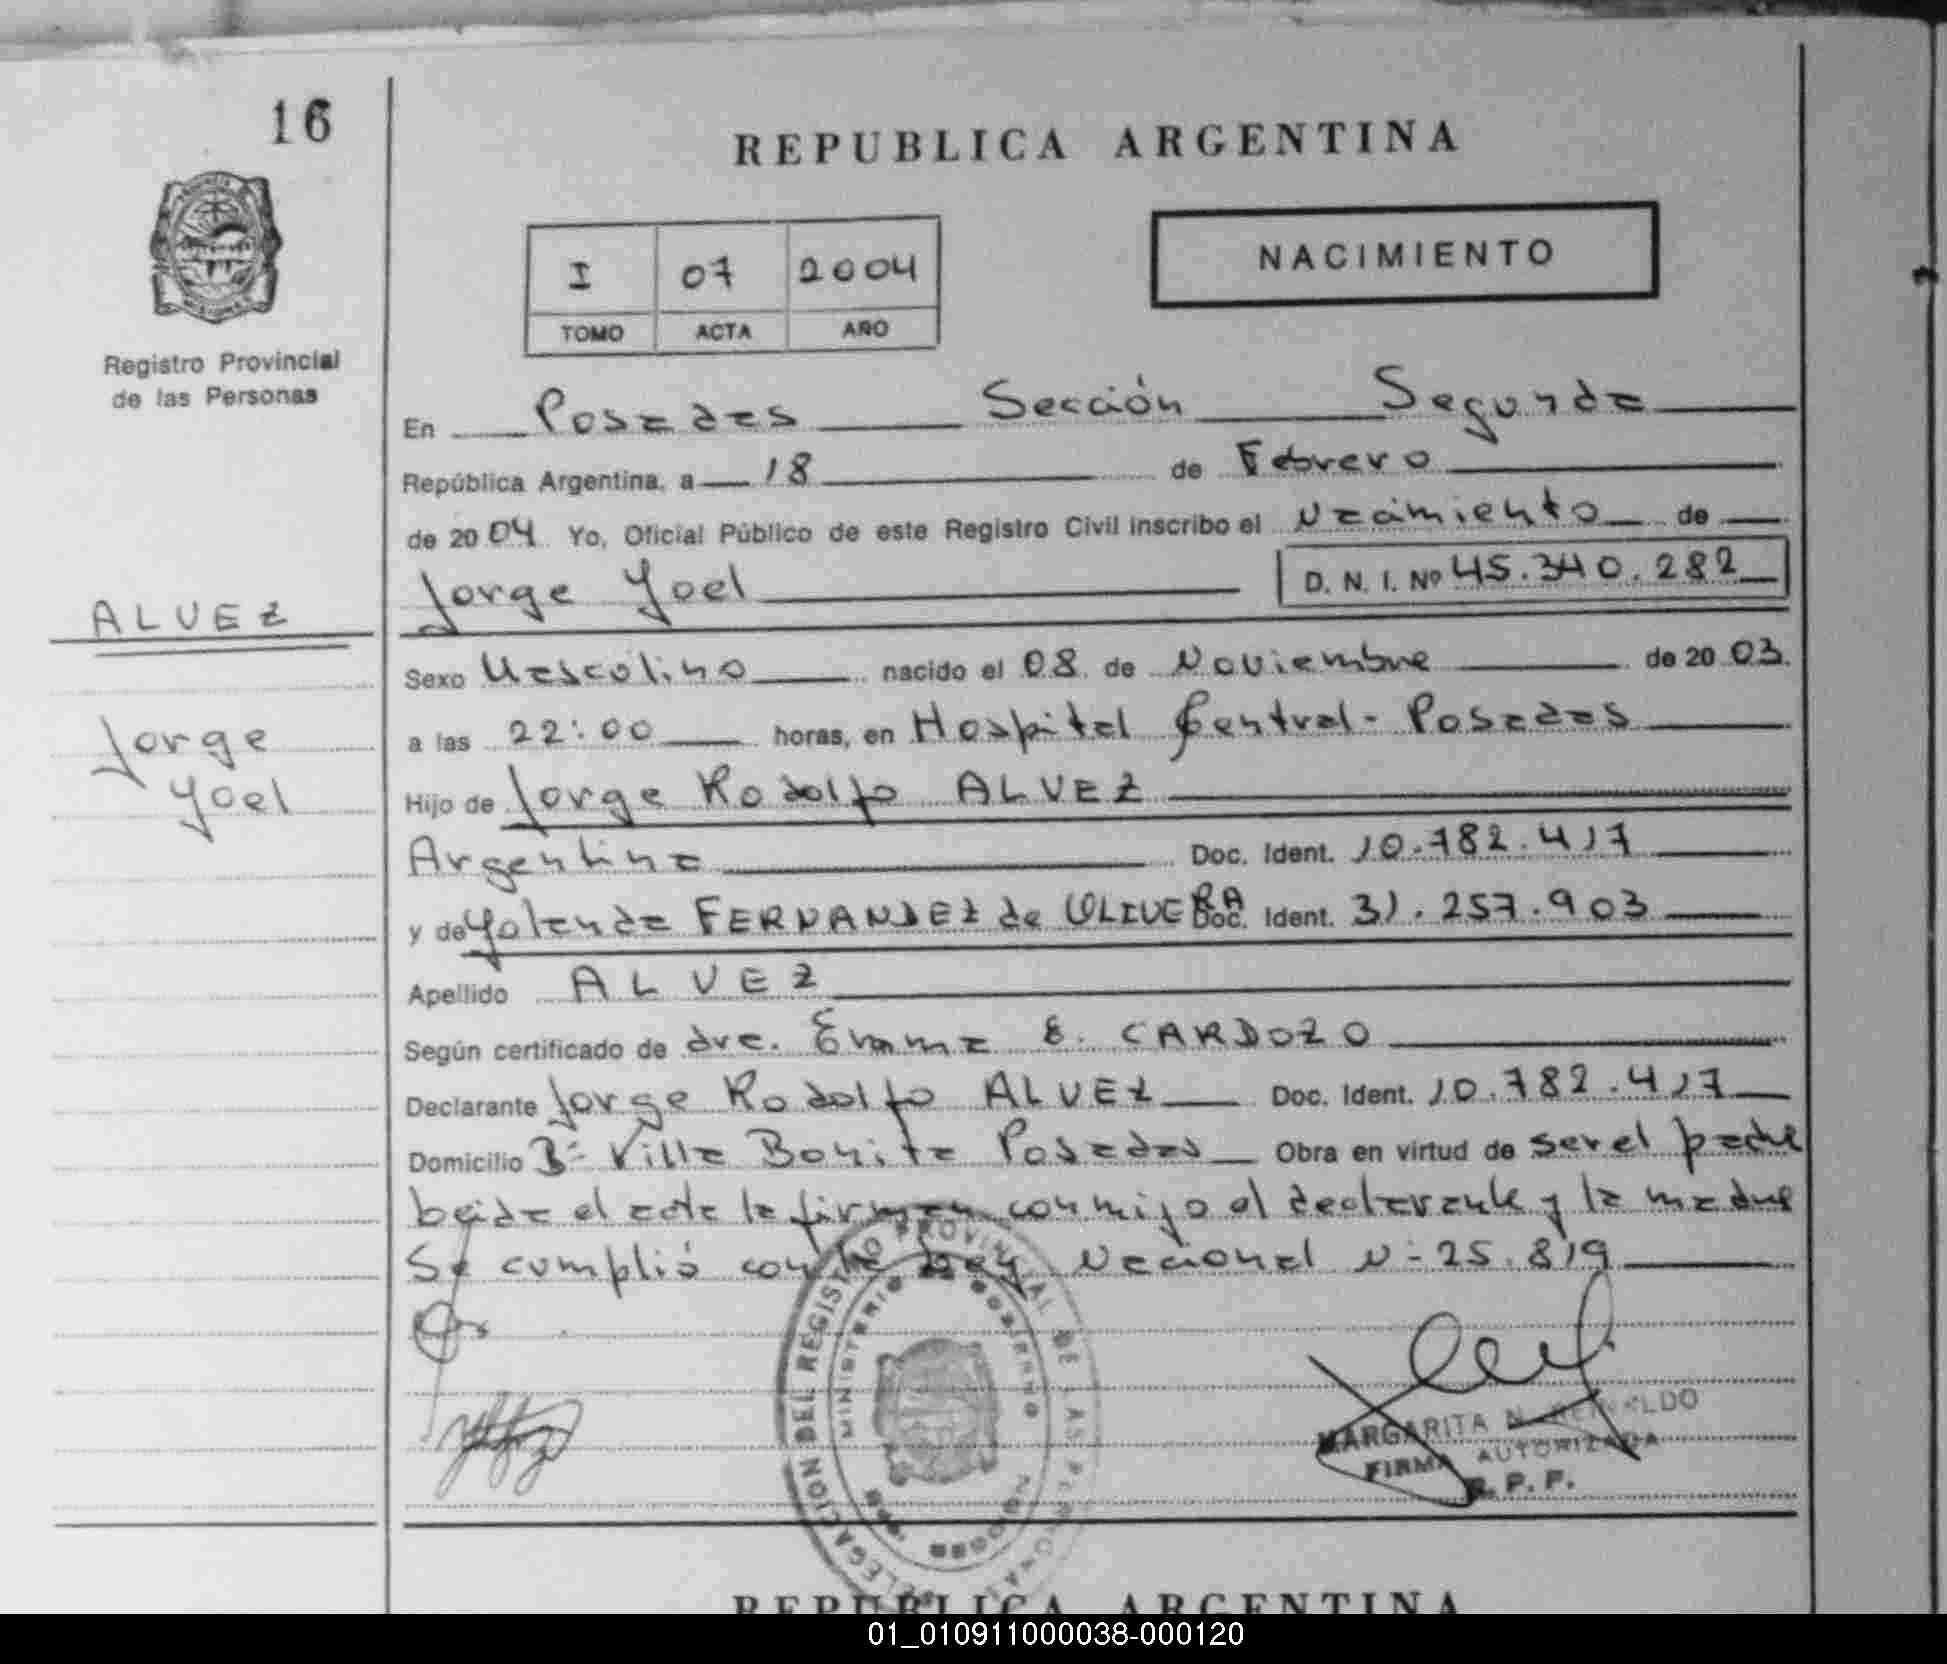 16
REPUBLICA ARGENTINA
NACIMIENTO
I 07 2004
TOMO ACTA AÑO
Registro Provincial
de las Personas
En Posadas Sección Segunda
República Argentina, a 18 de Febrero
de 2004 Yo, Oficial Público de este Registro Civil inscribo el Nacimiento de
Jorge Yoel D. N. I. Nº 45.340.282
ALVEZ
Sexo Masculino nacido el 08 de Noviembre de 2003.
Jorge
Yoel
a las 22:00 horas, en Hospital Central - Posadas
Hijo de Jorge Rodolfo ALVEZ
Argentina Doc. Ident. 10.782.417
y de Yolanda FERNANDEZ de OLIVERA Doc. Ident. 31.257.903
Apellido ALVEZ
Según certificado de dra. Emma E. CARDOZO
Declarante Jorge Rodolfo ALVEZ Doc. Ident. 10.782.417
Domicilio Bº Villa Bonita Posadas Obra en virtud de ser el padre
Leida el acta la firman conmigo el declarante y la madre
Se cumplió con la Ley Nacional Nº 25.819
DELEGACION DEL REGISTRO PROVINCIAL DE LAS PERSONAS
MINISTERIO DE GOBIERNO
MARGARITA N. REINALDO
FIRMA AUTORIZADA
R. P. P.
REPUBLICA ARGENTINA
01_010911000038-000120